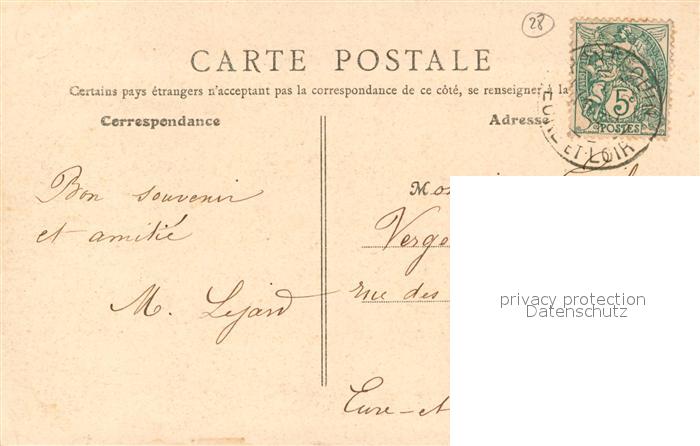 28
CARTE POSTALE
Certains pays étrangers n'acceptant pas la correspondance de ce côté, se renseigner à la
Correspondance
Adresse
5c
POSTES
EURE-ET-LOIR
Bon souvenir
et amitié
M. Lejard
Verge
rue des
Eure-et
privacy protection
Datenschutz